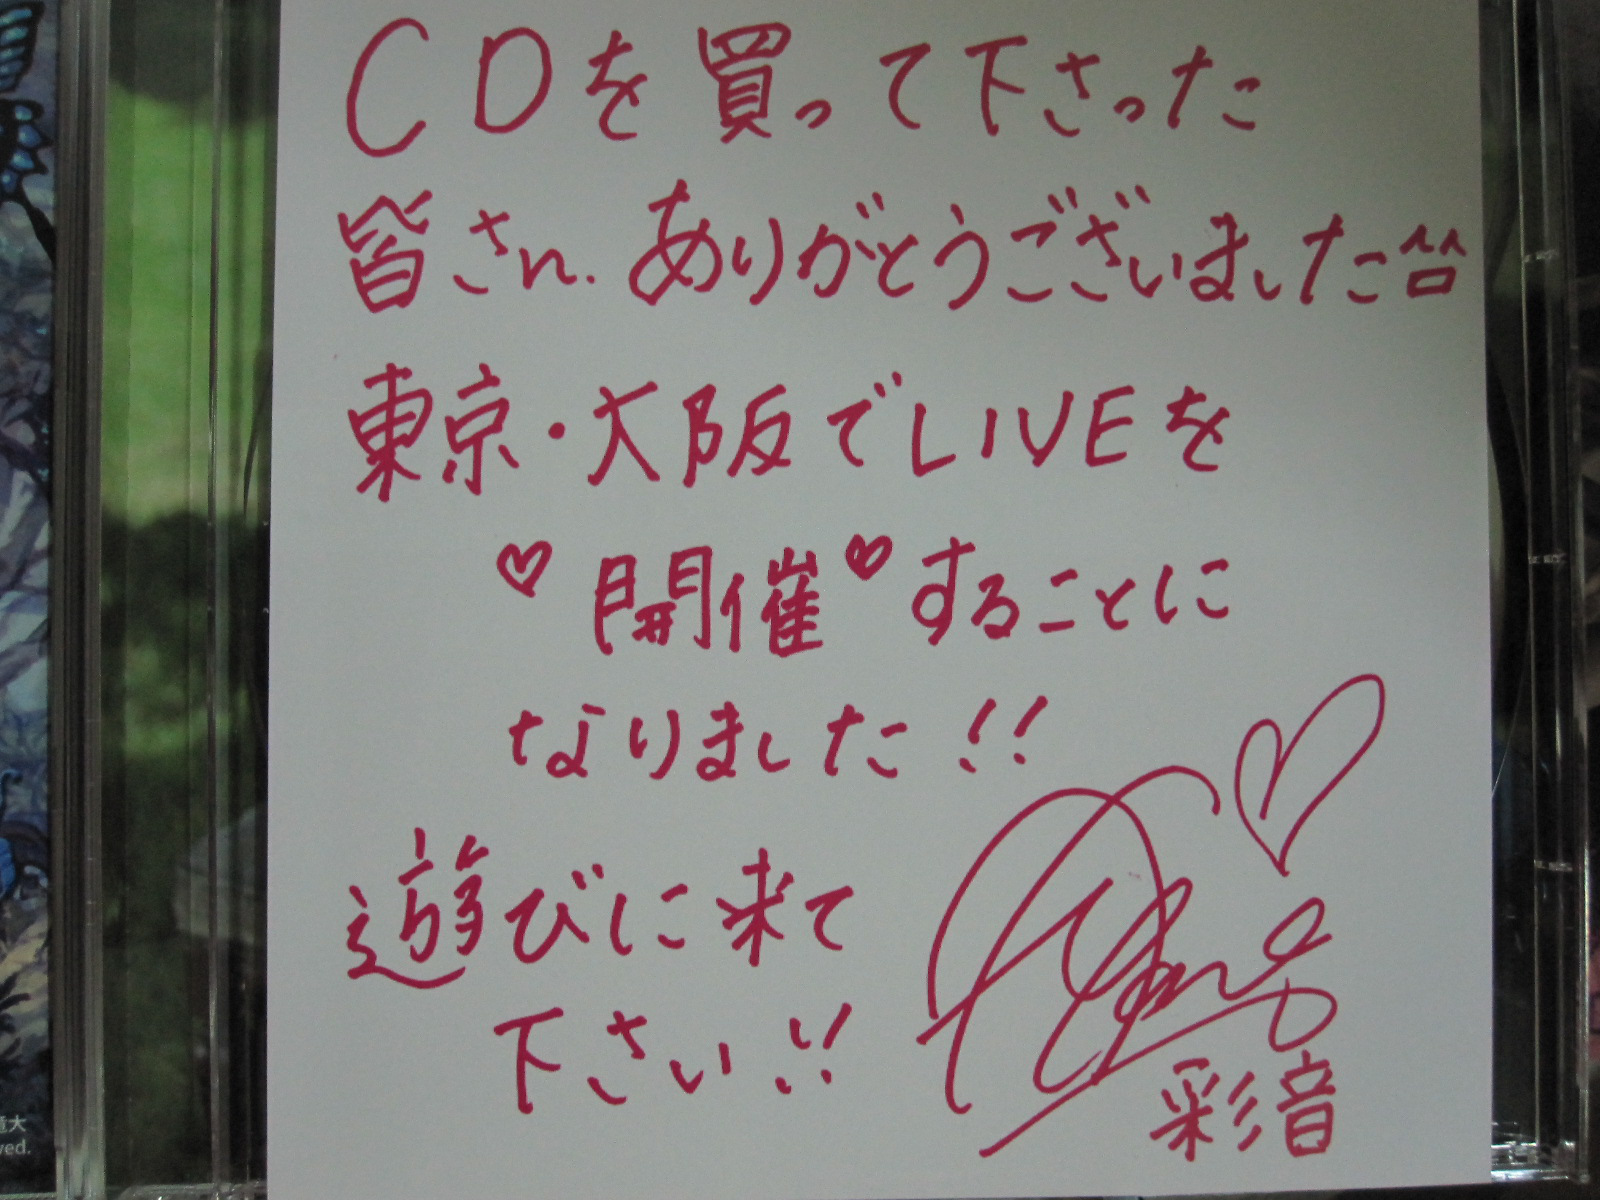 CDを買って下さった
皆さん.ありがとうございました^^
東京・大阪でLIVEを
♡開催♡することに
なりました!!
遊びに来て
下さい!!
彩音
竜大
ved.